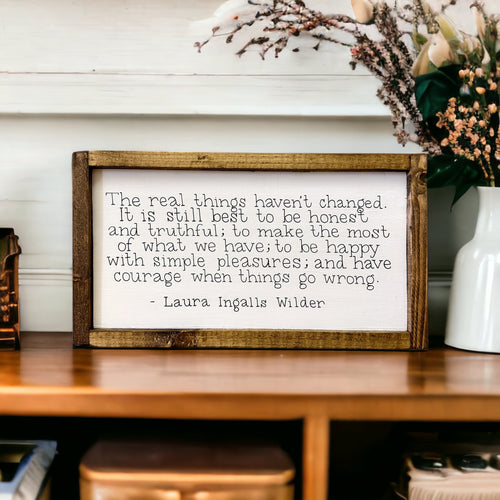 The real things haven't changed.
It is still best to be honest
and truthful; to make the most
of what we have; to be happy
with simple pleasures; and have
courage when things go wrong.
- Laura Ingalls Wilder